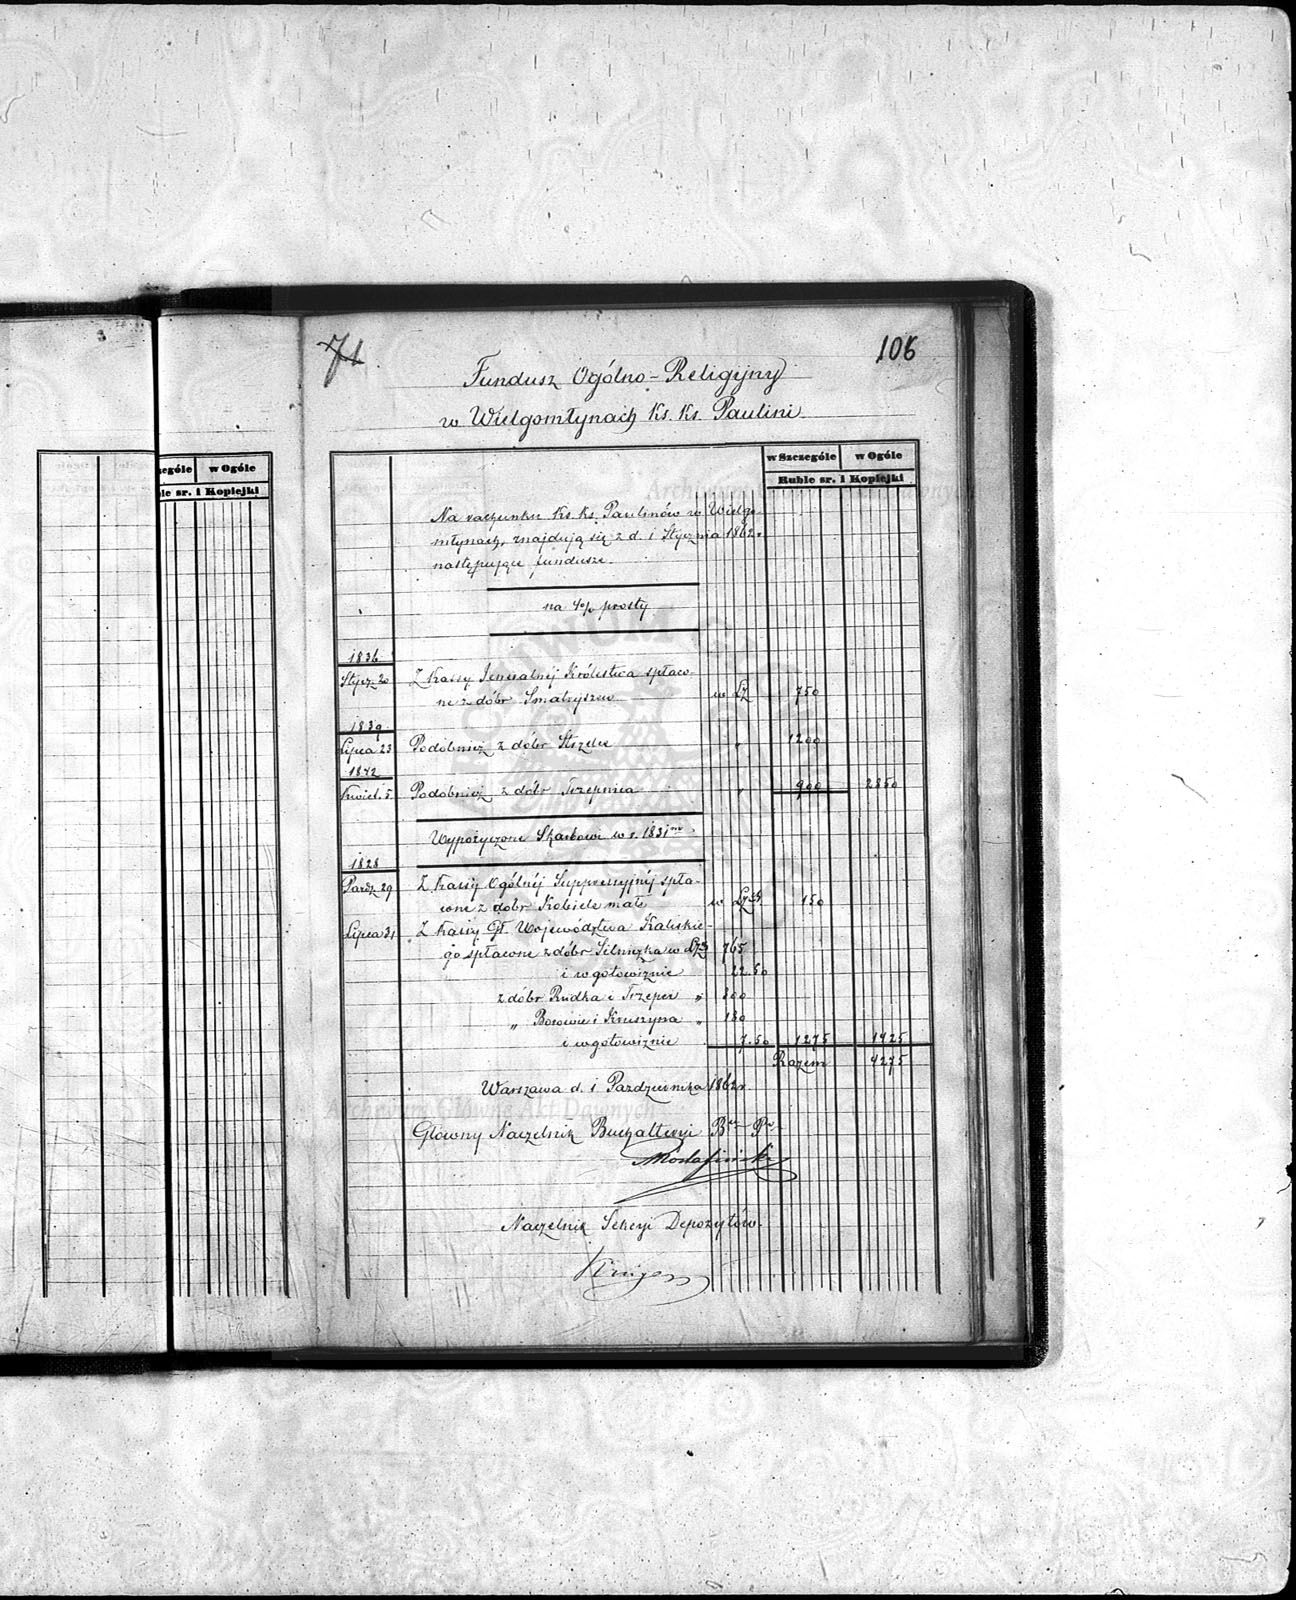 71
106
Fundusz Ogólno-Religijny
w Wielgomłynach Ks. Ks. Paulini
w Szczególe w Ogóle
Ruble sr. i Kopiejki
zególe w Ogóle
le sr. i Kopiejki
Na rachunku Ks. Ks. Paulinów w Wielgo-
młynach, znajdują się z d. 1 Stycznia 1862 r.
następujące fundusze.
na 4% prosty
1836
Stycz. 20 Z Kassy Jeneralnéj Królestwa spłaco-
ne z dóbr w LZ 750
1839
Lipca 23 Podobnież z dóbr " 1200
1842
Kwiet. 5 Podobnież z dóbr Trzepnica " 900 2850
Wypożyczone Skarbowi w r. 1831
1828
Paźdz. 29 Z Kassy Ogólnéj Suppressyjnéj spła-
cone z dóbr Kobiele małe w LZ 150
Lipca 31 Z Kassy Gł. Województwa Kaliskie-
go spłacone z dóbr Silniczka w LZ 765
i w gotowiznie 22.50
z dóbr Rudka i " 300
" Borowie i Kruszyna " 180
i w gotowiznie 7.50 1275 1425
Razem 4275
Warszawa d. 1 Pazdziernika 1862 r.
Główny Naczelnik Buchalteryi
Naczelnik Sekcyi Depozytów.
Archiwum Główne Akt Dawnych